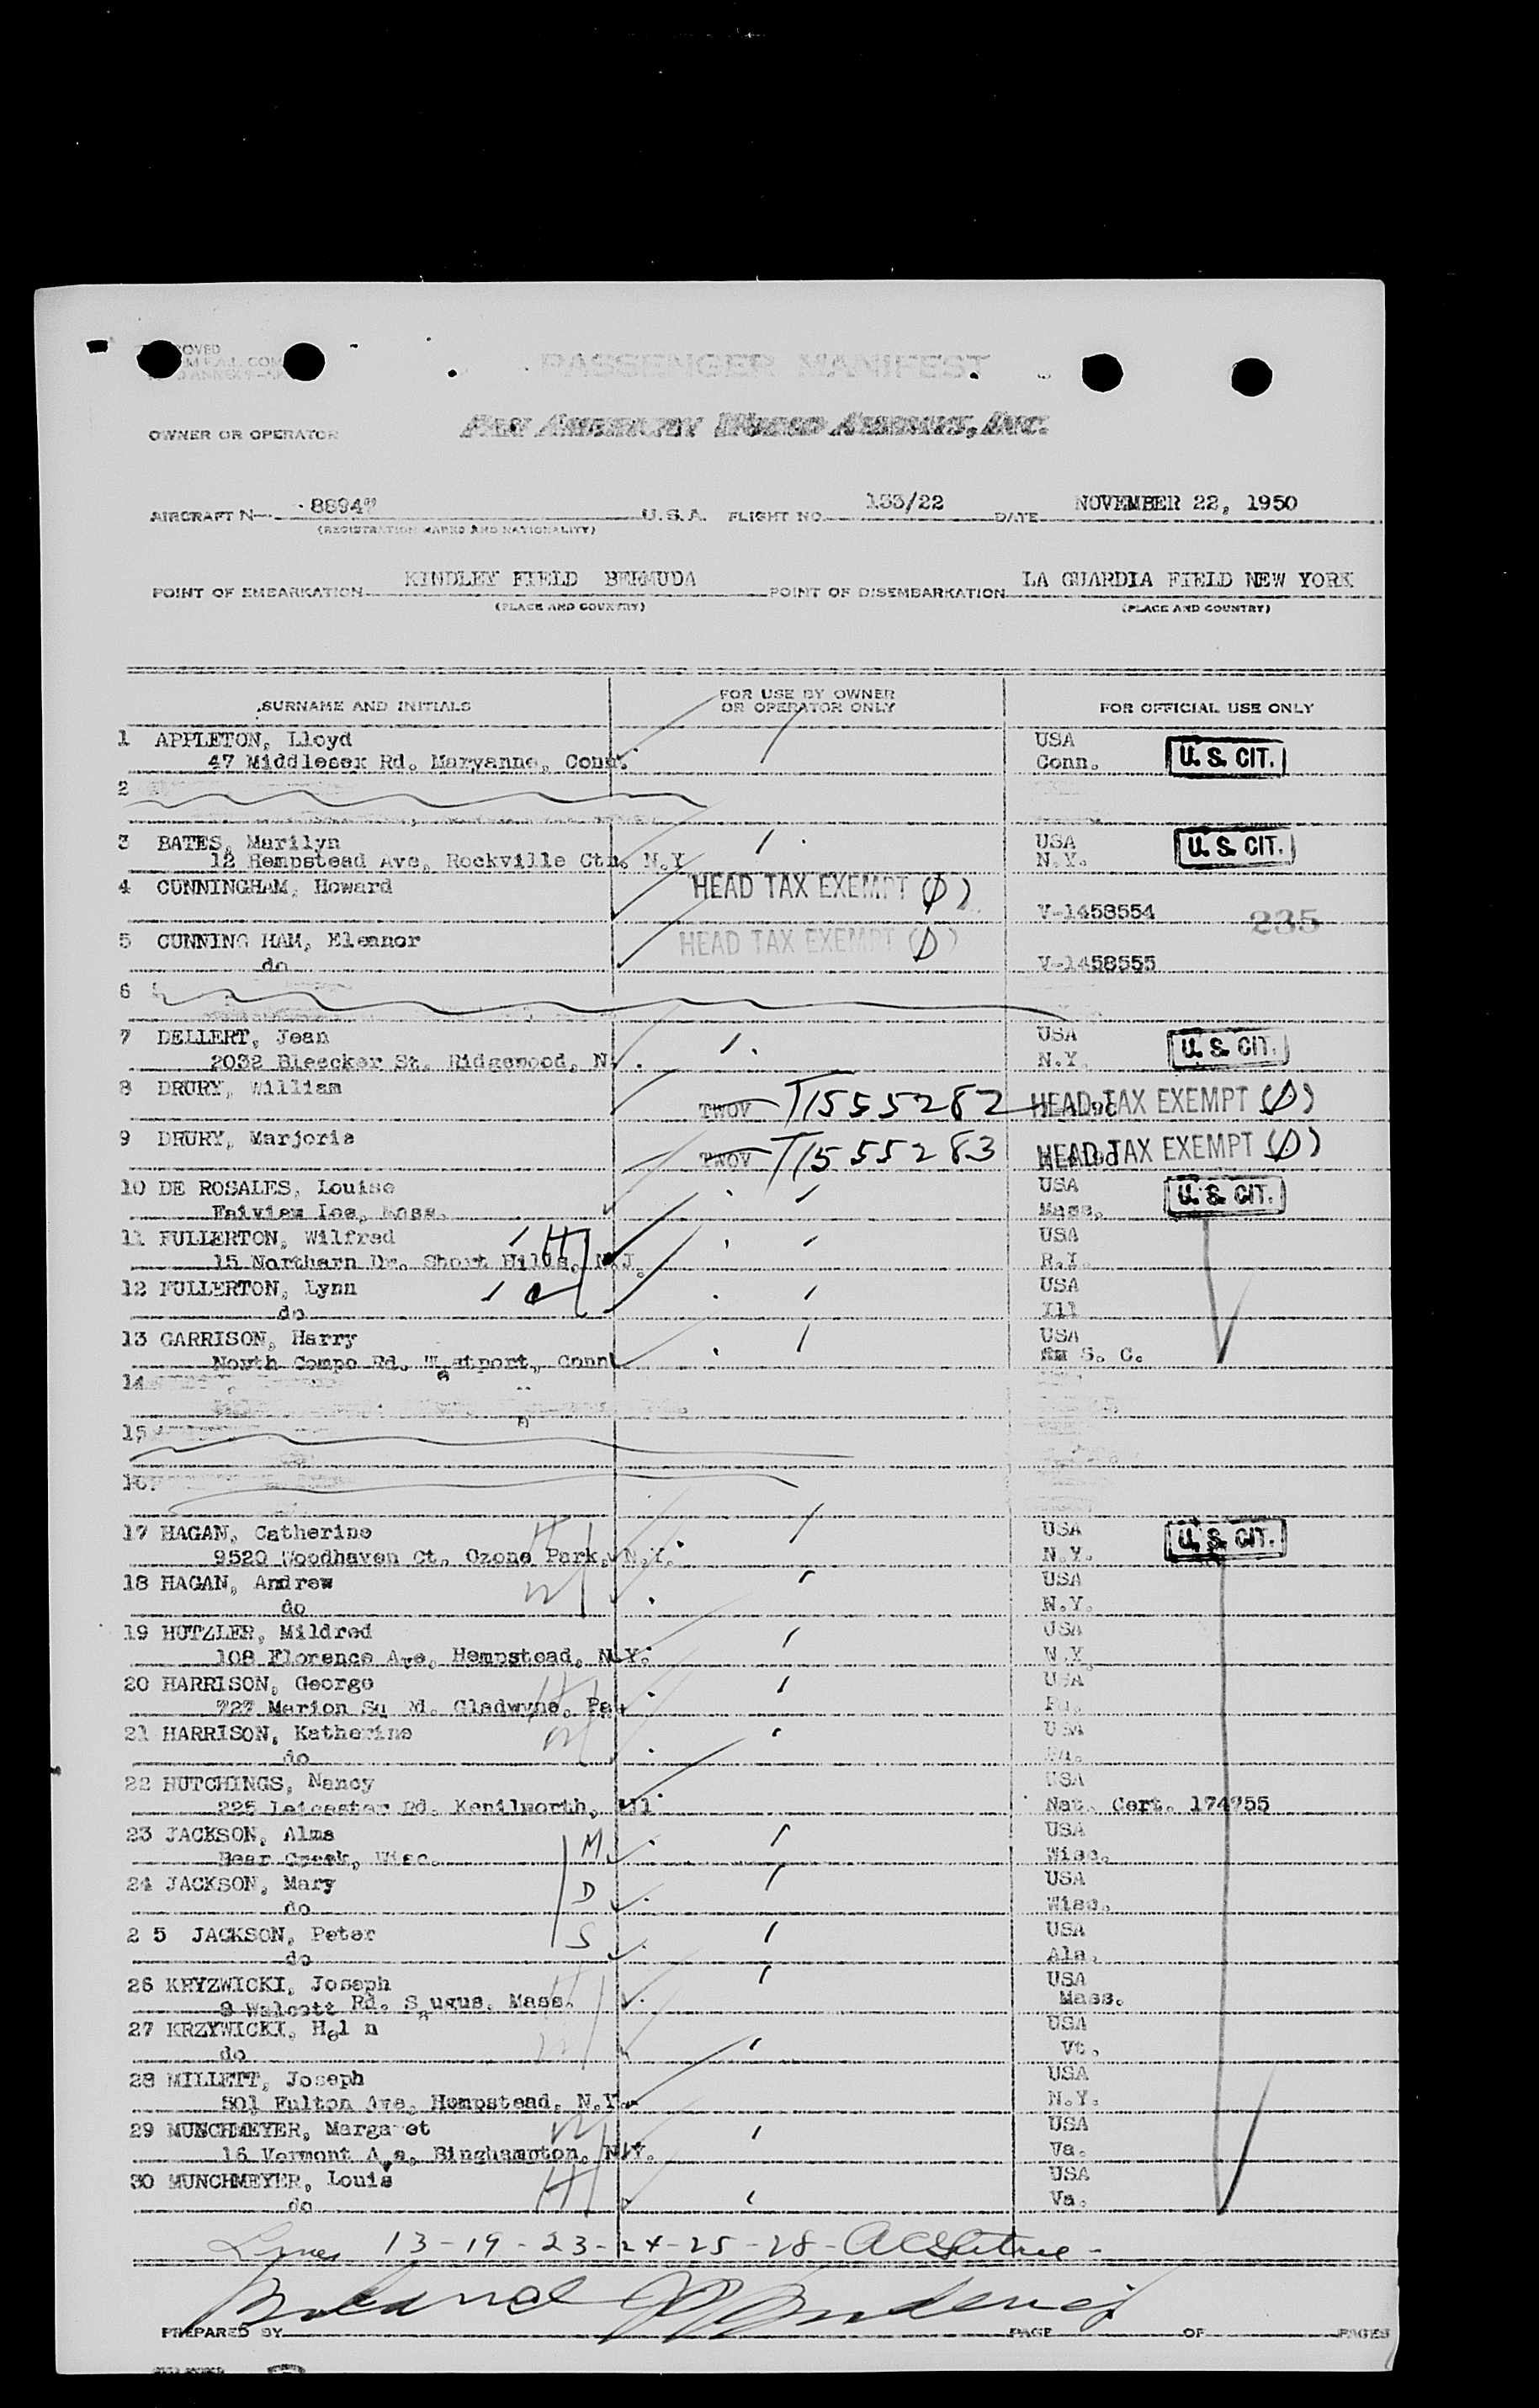 PASSENGER MANIFEST
OWNER OR OPERATOR PAN AMERICAN WORLD AIRWAYS, INC.
AIRCRAFT N- 88947 U.S.A. FLIGHT NO. 133/22 DATE NOVEMBER 22, 1950
(REGISTRATION MARKS AND NATIONALITY)
POINT OF EMBARKATION KINDLEY FIELD BERMUDA POINT OF DISEMBARKATION LA GUARDIA FIELD NEW YORK
(PLACE AND COUNTRY) (PLACE AND COUNTRY)
SURNAME AND INITIALS FOR USE BY OWNER OR OPERATOR ONLY FOR OFFICIAL USE ONLY
1 APPLETON, Lloyd USA
47 Middlesex Rd. Maryanne, Conn. Conn. U.S. CIT.
2
3 BATES, Marilyn USA
12 Hempstead Ave, Rockville Ctn. N.Y N.Y. U.S. CIT.
4 CUNNINGHAM, Howard HEAD TAX EXEMPT
V-1458554 235
5 CUNNING HAM, Eleanor HEAD TAX EXEMPT
do V-1458555
6
7 DELLERT, Jean USA
2032 Bleecker St. Ridgewood, N. . N.Y. U.S. CIT.
8 DRURY, William
TWOV T1555282 HEAD TAX EXEMPT
9 DRURY, Marjorie
TWOV T1555283 HEAD TAX EXEMPT
10 DE ROSALES, Louise USA
Mass. U.S. CIT.
11 FULLERTON, Wilfred H USA
15 Northern Dr. Short Hills, N.J. R.I.
12 FULLERTON, Lynn USA
do Ill
13 GARRISON, Harry USA
North Compo Rd. Westport, Conn S. C.
14
15
16
17 HAGAN, Catherine H USA
9520 Woodhaven Ct. Ozone Park, N.Y. N.Y. U.S. CIT.
18 HAGAN, Andrew W USA
do N.Y.
19 HUTZLER, Mildred USA
108 Florence Ave, Hempstead, N.Y. N.Y
20 HARRISON, George H USA
727 Marion Sq Rd. Gladwyne, Pa. Pa.
21 HARRISON, Katherine W USA
do Pa.
22 HUTCHINGS, Nancy USA
225 Leicester Rd. Kenilworth, Ill Nat. Cert. 174755
23 JACKSON, Alma M USA
Bear Creek, Wisc. Wisc.
24 JACKSON, Mary D USA
do Wisc.
2 5 JACKSON, Peter S USA
do Ala.
26 KRYZWICKI, Joseph H USA
9 Walcott Rd. Saugus. Mass. Mass.
27 KRZYWICKI, Hel n W USA
do Vt.
28 MILLETT, Joseph USA
501 Fulton Ave, Hempstead, N.Y. N.Y.
29 MUNCHMEYER, Marga et W USA
16 Vermont Ave, Binghampton, N.Y. Va.
30 MUNCHMEYER, Louis H USA
do Va.
Lines 13-19-23-24-25-28-
PREPARED BY PAGE OF PAGES